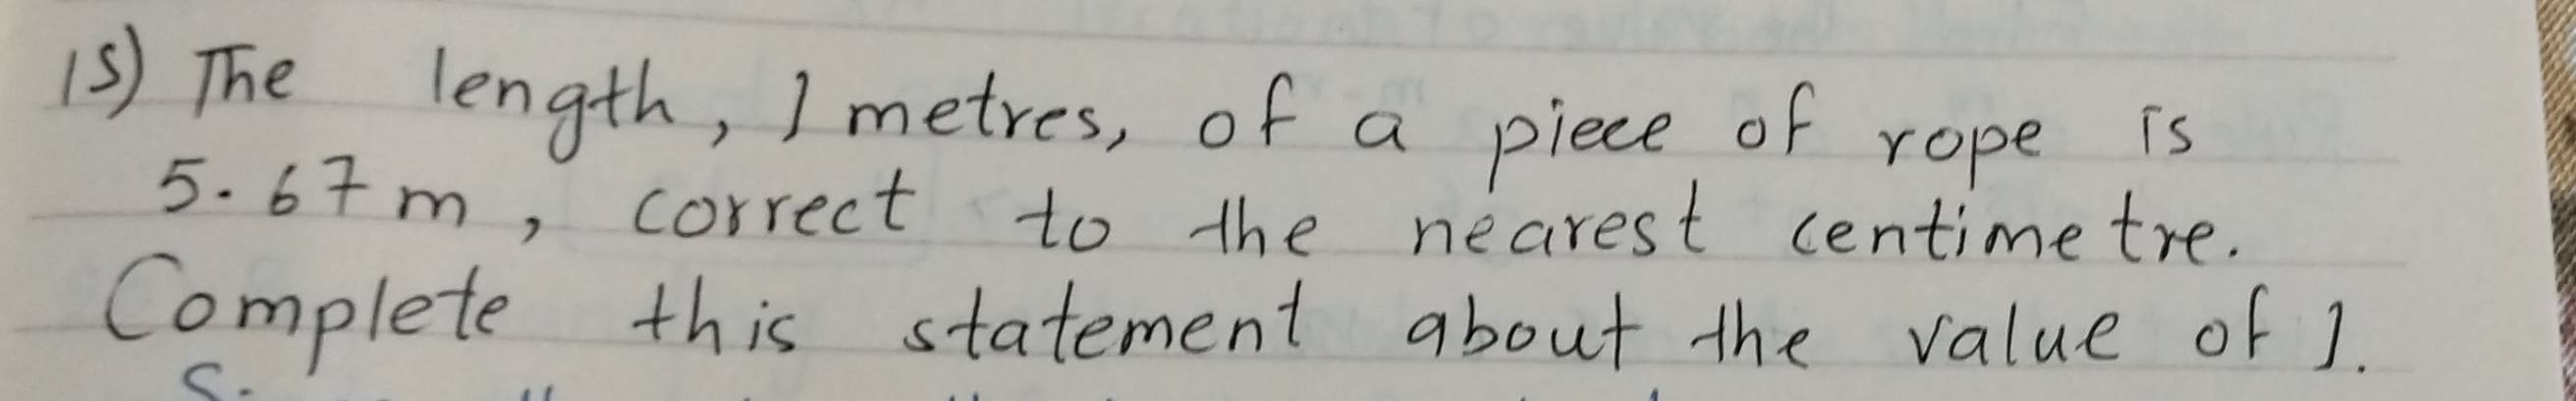 15) The length, l metres, of a piece of rope is
5.67m, correct to the nearest centimetre.
Complete this statement about the value of l.